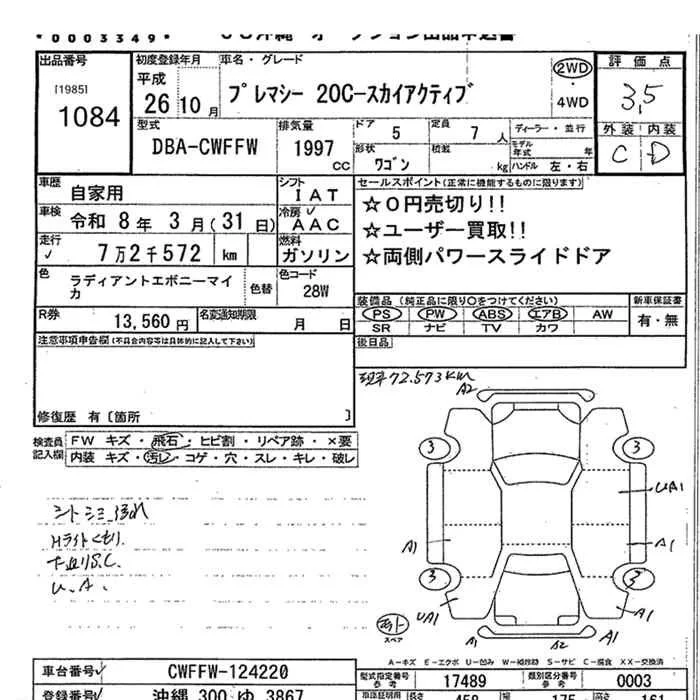 *0003349*
出品番号
[1985]
1084
初度登録年月
平成
26 10 月
車名・グレード
プレマシー 20C-スカイアクティブ
2WD
・
4WD
評価点
3,5
外装 内装
C D
型式
DBA-CWFFW
排気量
1997 CC
ドア 5
定員 7 人
形状 ワゴン
積載 kg
ディーラー・並行
モデル年式 年
ハンドル 左・右
車歴 自家用
シフト IAT
車検 令和 8 年 3 月(31 日)
冷房 AAC
走行 7万2千572 km
燃料 ガソリン
色 ラディアントエボニーマイカ
色替
色コード 28W
R券 13,560 円
名変通知期限 月 日
セールスポイント(正常に機能するものに限ります)
☆0円売切り!!
☆ユーザー買取!!
☆両側パワースライドドア
装備品(純正品に限り○をつけてください)
PS PW ABS エアB AW
SR ナビ TV カワ
新車保証書
有・無
後日品
注意事項申告欄(不具合内容等は具体的に記入して下さい)
修復歴 有〔箇所 〕
現車72.573km
検査員記入欄
FW キズ・飛石・ヒビ割・リペア跡・×要
内装 キズ・汚レ・コゲ・穴・スレ・キレ・破レ
Hライトくもり
U、A、
A2
3 3
UA1
A1 A1
3 3
UA1 A1
A1 A2 A1
スペア
A-キズ E-エクボ U-凹み W-補修跡 S-サビ C-腐食 XX-交換済
車台番号 CWFFW-124220
型式指定番号 参考 17489
類別区分番号 参考 0003
登録番号 沖縄 300 ゆ 3867